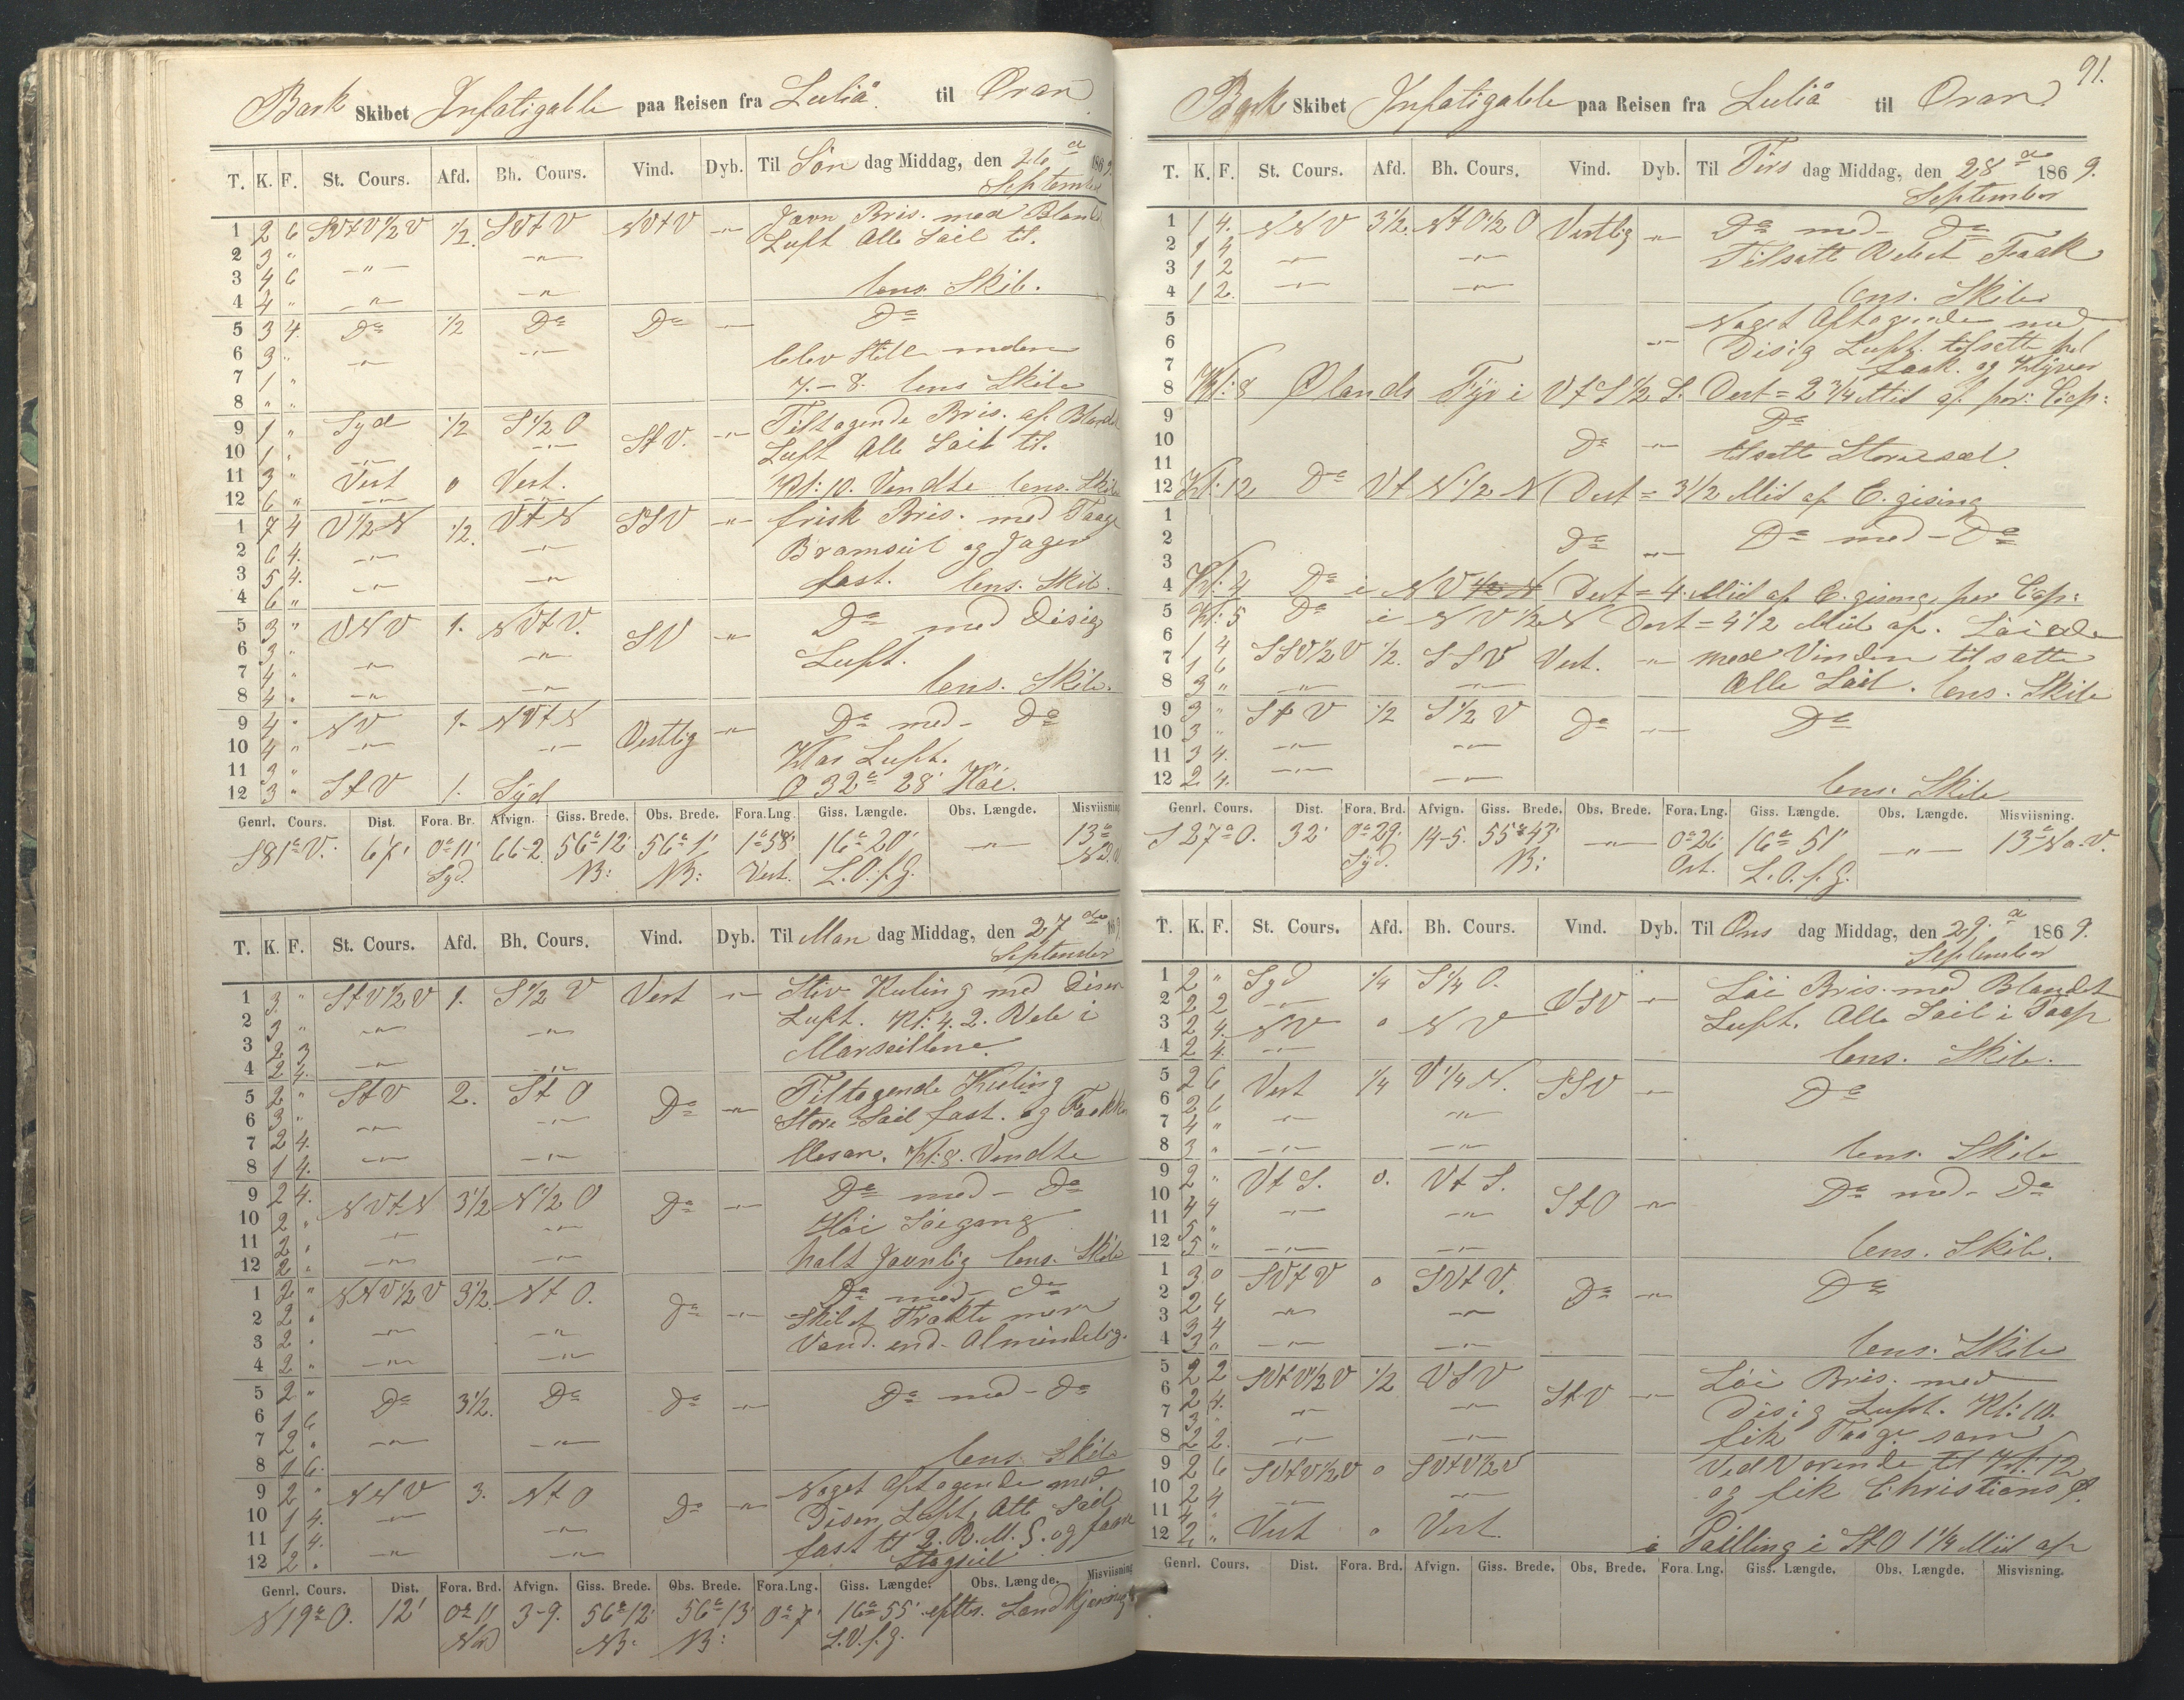 Bark Skibet Infatigable paa Reisen fra Luliå til Oran
T. K. F. St. Cours. Afd. Bh. Cours. Vind. Dyb. Til Søn dag Middag, den 26 a 1869.
September
1 2 6 SVtV1/2V 1/2. SVtV SVtV -"- Jævn Bris. med Blandt
2 3 " Luft Alle Sail til.
3 4 6 -"- -"-
4 4 " -"- -"- lens. Skib.
5 3 4. Do 1/2 Do Do -"- Do
6 3 " -"- -"- blev Stille mden
7 1 " 7.-8. lens Skib
8 " "
9 1 " Syd 1/2 S1/2O StV. -"- Tiltagende Bris. af Blandt
10 1 " -"- -"- Luft Alle Sail til.
11 3 " Vest 0 Vest.
12 6 " -"- -"- Kl: 10. Vendte lens. Skib
1 7 4 V1/2N 1/2. VtN SSV -"- frisk Bris. med Taage
2 6 4. -"- -"- Bramseil og Jager
3 5 4. -"- -"- fast. lens. Skib.
4 6 "
5 3 " VNV 1. NVtV. SV -"- Do med Disig
6 3 " -"- -"- Luft.
7 4 "
8 4 " -"- -"- lens. Skib.
9 4 " NV 1. NVtN Vestlig -"- Do med - Do
10 4 " -"- -"- Klar Luft.
11 3 " O 32° 28' Høi.
12 3 " StV 1. Syd
Genrl. Cours. Dist. Fora. Br. Afvign. Giss. Brede. Obs. Brede. Fora.Lng. Giss. Længde. Obs. Længde. Misviisning
S81°V. 67' 0°11' 66-2. 56°12' 56°1' 1°58' 16°20' -"- 13°
Syd. N: N: Vest. L.O.f.G.
T. K. F. St. Cours. Afd. Bh. Cours. Vind. Dyb. Til Man dag Middag, den 27 de 1869.
September
1 3. " StV1/2V 1. S1/2V Vest -"- Stiv Kuling med Disen
2 3 " -"- -"- Luft. Kl: 4. 2. Reb i
3 2 3 Marseillene.
4 2 4. -"- -"-
5 2 " StV 2. StO Do -"- Tiltagende Kuling
6 3 " -"- -"- Store Sail fast. og Fokk
7 2 4.
8 1 4. -"- -"- Mesan. Kl: 8. Vendte
9 2 4. NVtN 3 1/2 N1/2O Do -"- Do med - Do
10 2 " -"- -"- Høi Søegang
11 2 "
12 2 " -"- -"- halt Jævnlig lens. Skib
1 2 " NNV1/2V 3 1/2. NtO. Do -"- Do med - Do
2 2 " Skibet Trakte mere
3 2 " -"- -"- Vand. end. Almindelig.
4 2 " -"- -"-
5 2 " Do 3 1/2. Do Do -"- Do med - Do
6 1 6
7 2 " -"- -"-
8 1 6. lens Skib
9 2 " NNV 3. NtO Do -"- Noget Aftagende med
10 1 4. -"- Disen Luft, Alle Sail
11 1 4. -"- fast til 2. R. M. S. og fore
12 2 " -"- -"- Stagseil
Genrl. Cours. Dist. Fora. Brd. Afvign. Giss. Brede. Obs. Brede. Fora.Lng. Giss. Længde: Obs. Længde. Misviisning
N19°O. 12' 0°11 3-9. 56°12' 56°13' 0°7' 16°55' efter. Landkjenning
Nord N: N: L.O.f.G.
91.
Bark Skibet Infatigable paa Reisen fra Luliå til Oran
T. K. F. St. Cours. Afd. Bh. Cours. Vind. Dyb. Til Tirs dag Middag, den 28 a 1869.
September
1 1 4. NNV 3 1/2. NtO1/2O Vestlig -"- Do med - Do
2 1 4 -"- -"- Tilsatte Rebet Faak
3 1 2
4 1 2. -"- -"- lens. Skib
5 Noget Aftagende med
6 -"- Disig Luft. tilsatte
7 Faak. og Klyver
8 Kl: 8 Ølands Fyr i VtS1/2S. Dest = 2 3/4 Mil af per: Cap:
9 Do
10 Do -"- tilsatte Storesæl.
11
12 Kl: 12 Do VtN1/2N Dest = 3 1/2 Mil af E. gising
1
2 Do -"- Do med - Do
3
4 Kl: 4 Do i NV Dest = 4. Mil af E. gising, per Cap:
5 Kl: 5 Do i NV1/2N Dest = 4 1/2 Mil af.
6 1 4 SSV1/2V 1/2. SSV Vest. -"- med Vinden tilsatte
7 1 6
8 3 " -"- -"- Alle Sail. lens. Skib
9 3 " StV 1/2 S1/2V Do -"- Do
10 3 "
11 3 4. -"- -"-
12 2 4. -"- -"- lens. Skib
Genrl. Cours. Dist. Fora. Brd. Afvign. Giss. Brede. Obs. Brede. Fora. Lng. Giss. Længde. Obs. Længde. Misviisning.
S27°O. 32' 0°29' 14-5. 55°43' -"- 0°26' 16°51' -"- 13°Na.V.
Syd. N: Ost. L.O.f.G.
T. K. F. St. Cours. Afd. Bh. Cours. Vind. Dyb. Til Ons dag Middag, den 29. a 1869.
September
1 2 " Syd 1/4 S1/4O. VSV -"- Løi Bris. med Blandet
2 2 2 -"- Luft. Alle Sail i Top
3 2 4. NV 0 NV
4 2 4. -"- lens. Skib.
5 2 6 Vest 1/4 V1/4N. SSV -"- Do
6 2 6 -"- -"-
7 4 "
8 3 " -"- -"- lens. Skib
9 2 " VtS. 0. VtS. StO -"- Do med - Do
10 4 4 -"- -"-
11 5 "
12 5 " -"- -"- lens. Skib.
1 3 0 SVtV 0 SVtV. Do -"- Do
2 2 4 -"- -"-
3 3 4
4 3 " -"- -"- lens. Skib
5 2 2 SVtV1/2V 1/2 VSV StV -"- Løi Bris. med
6 2 4. -"- -"- Disig Luft. Kl: 10.
7 3 " fik Taage som
8 2 2. -"- -"-
9 2 6 SVtV1/2V 0 SVtV1/2V Ved Varende til Kl: 12
10 2 4 -"- -"- og fik Christians Ø.
11 4 "
12 2 " Vest 0 Vest. i Pailling i StO 1 1/4 Mil af
Genrl. Cours. Dist. Fora. Brd. Afvign. Giss. Brede. Obs. Brede. Fora. Lng. Giss. Længde. Obs. Længde. Misvisning.